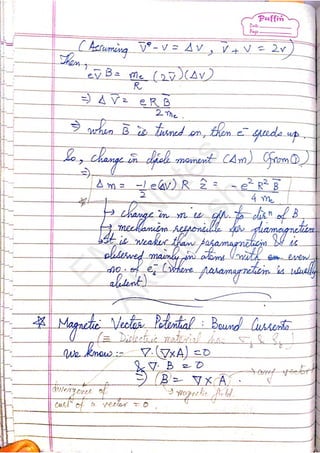 Puffin
Date
Page
(Assuming v̄° - v = Δv , v̄ + v = 2v)
Then,
e v̄ B = me/R (2v̄)(Δv)
⇒ Δv̄ = eRB̄ / 2me.
⇒ when B̄ is turned on, then e⁻ speeds up.
So, change in dipole moment (Δm) (from ①)
⇒
Δm = -1/2 e(Δv) R ẑ = - e² R² B̄ / 4me
* ↳ change in m is opp. to dirⁿ of B
↳ mechanism responsible for diamagnetism
↳ It is weaker than paramagnetism & is
observed mainly in atoms with even
no. of e⁻s (where paramagnetism is usually
absent)
* Magnetic Vector Potential : Bound Currents
(≡ Dielectric material has
we know :- ∇·(∇×A) = 0
& ∇·B = 0 → any vector
⇒ (B̄ = ∇×A)
divergence of → magnetic field.
curl of a vector = 0